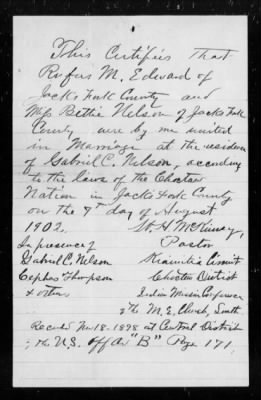 This Certifies that
Rufus M. Edward of
Jacks Fork County and
Miss Bettie Nelson of Jacks Fork
County were by me united
in Marriage at the residence
of Gabriel C. Nelson, according
to the laws of the Choctaw
Nation in Jacks Fork County
on the 7" day of August
1902. W. H. McKinney,
In presence of Pastor
Gabriel C. Nelson Kiamitia Circuit
Cephas Thompson Choctaw District
& others Indian Mission Conference
of the M. E. Church, South.
Record Nov. 18-1898 at Central District
of the U.S. off Ar "B" Page 171